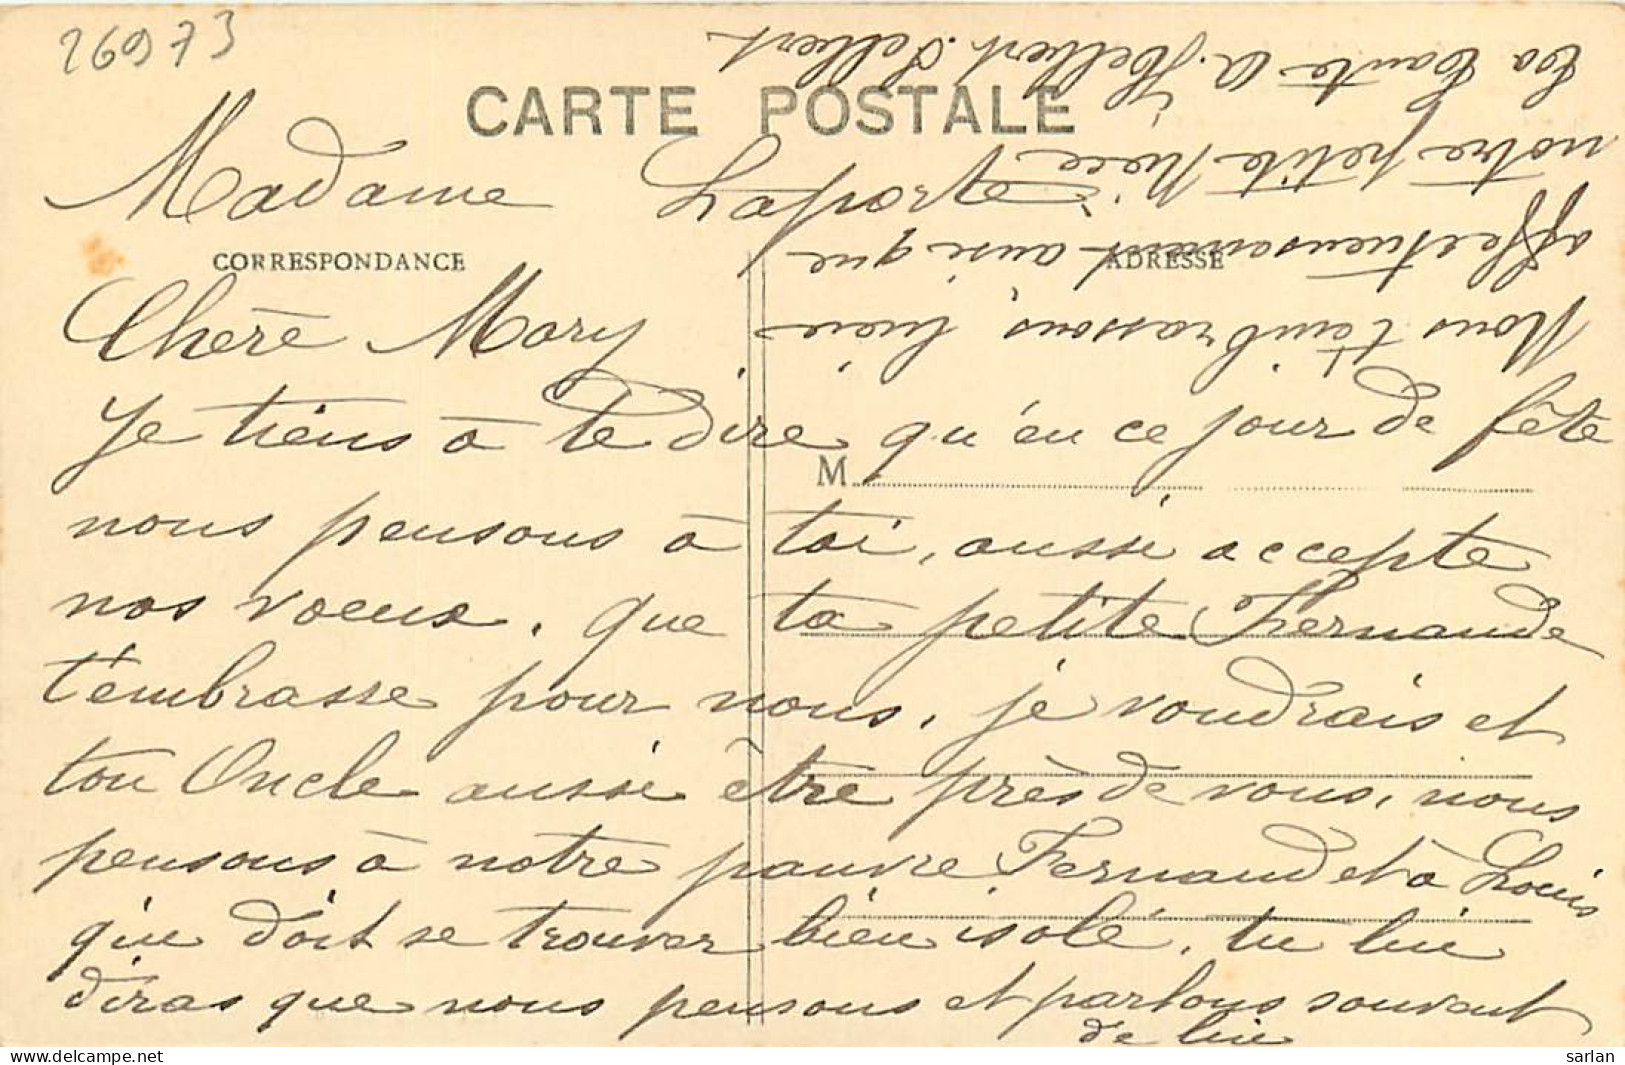 26973
CARTE POSTALE
Madame Laporte
CORRESPONDANCE
ADRESSE
Chère Mary
Je tiens à te dire qu'en ce jour de fête
M
nous pensons à toi, aussi accepte
nos voeux. que ta petite Fernande
t'embrasse pour nous. je voudrais et
ton Oncle aussi être près de vous, nous
pensons à notre pauvre Fernand et à Louis
qui doit se trouver bien isolé, tu lui
diras que nous pensons et parlons souvent
de lui
Nous t'embrassons, bien
affectueusement ainsi que
notre petite Nièce
ta tante A. Helbert